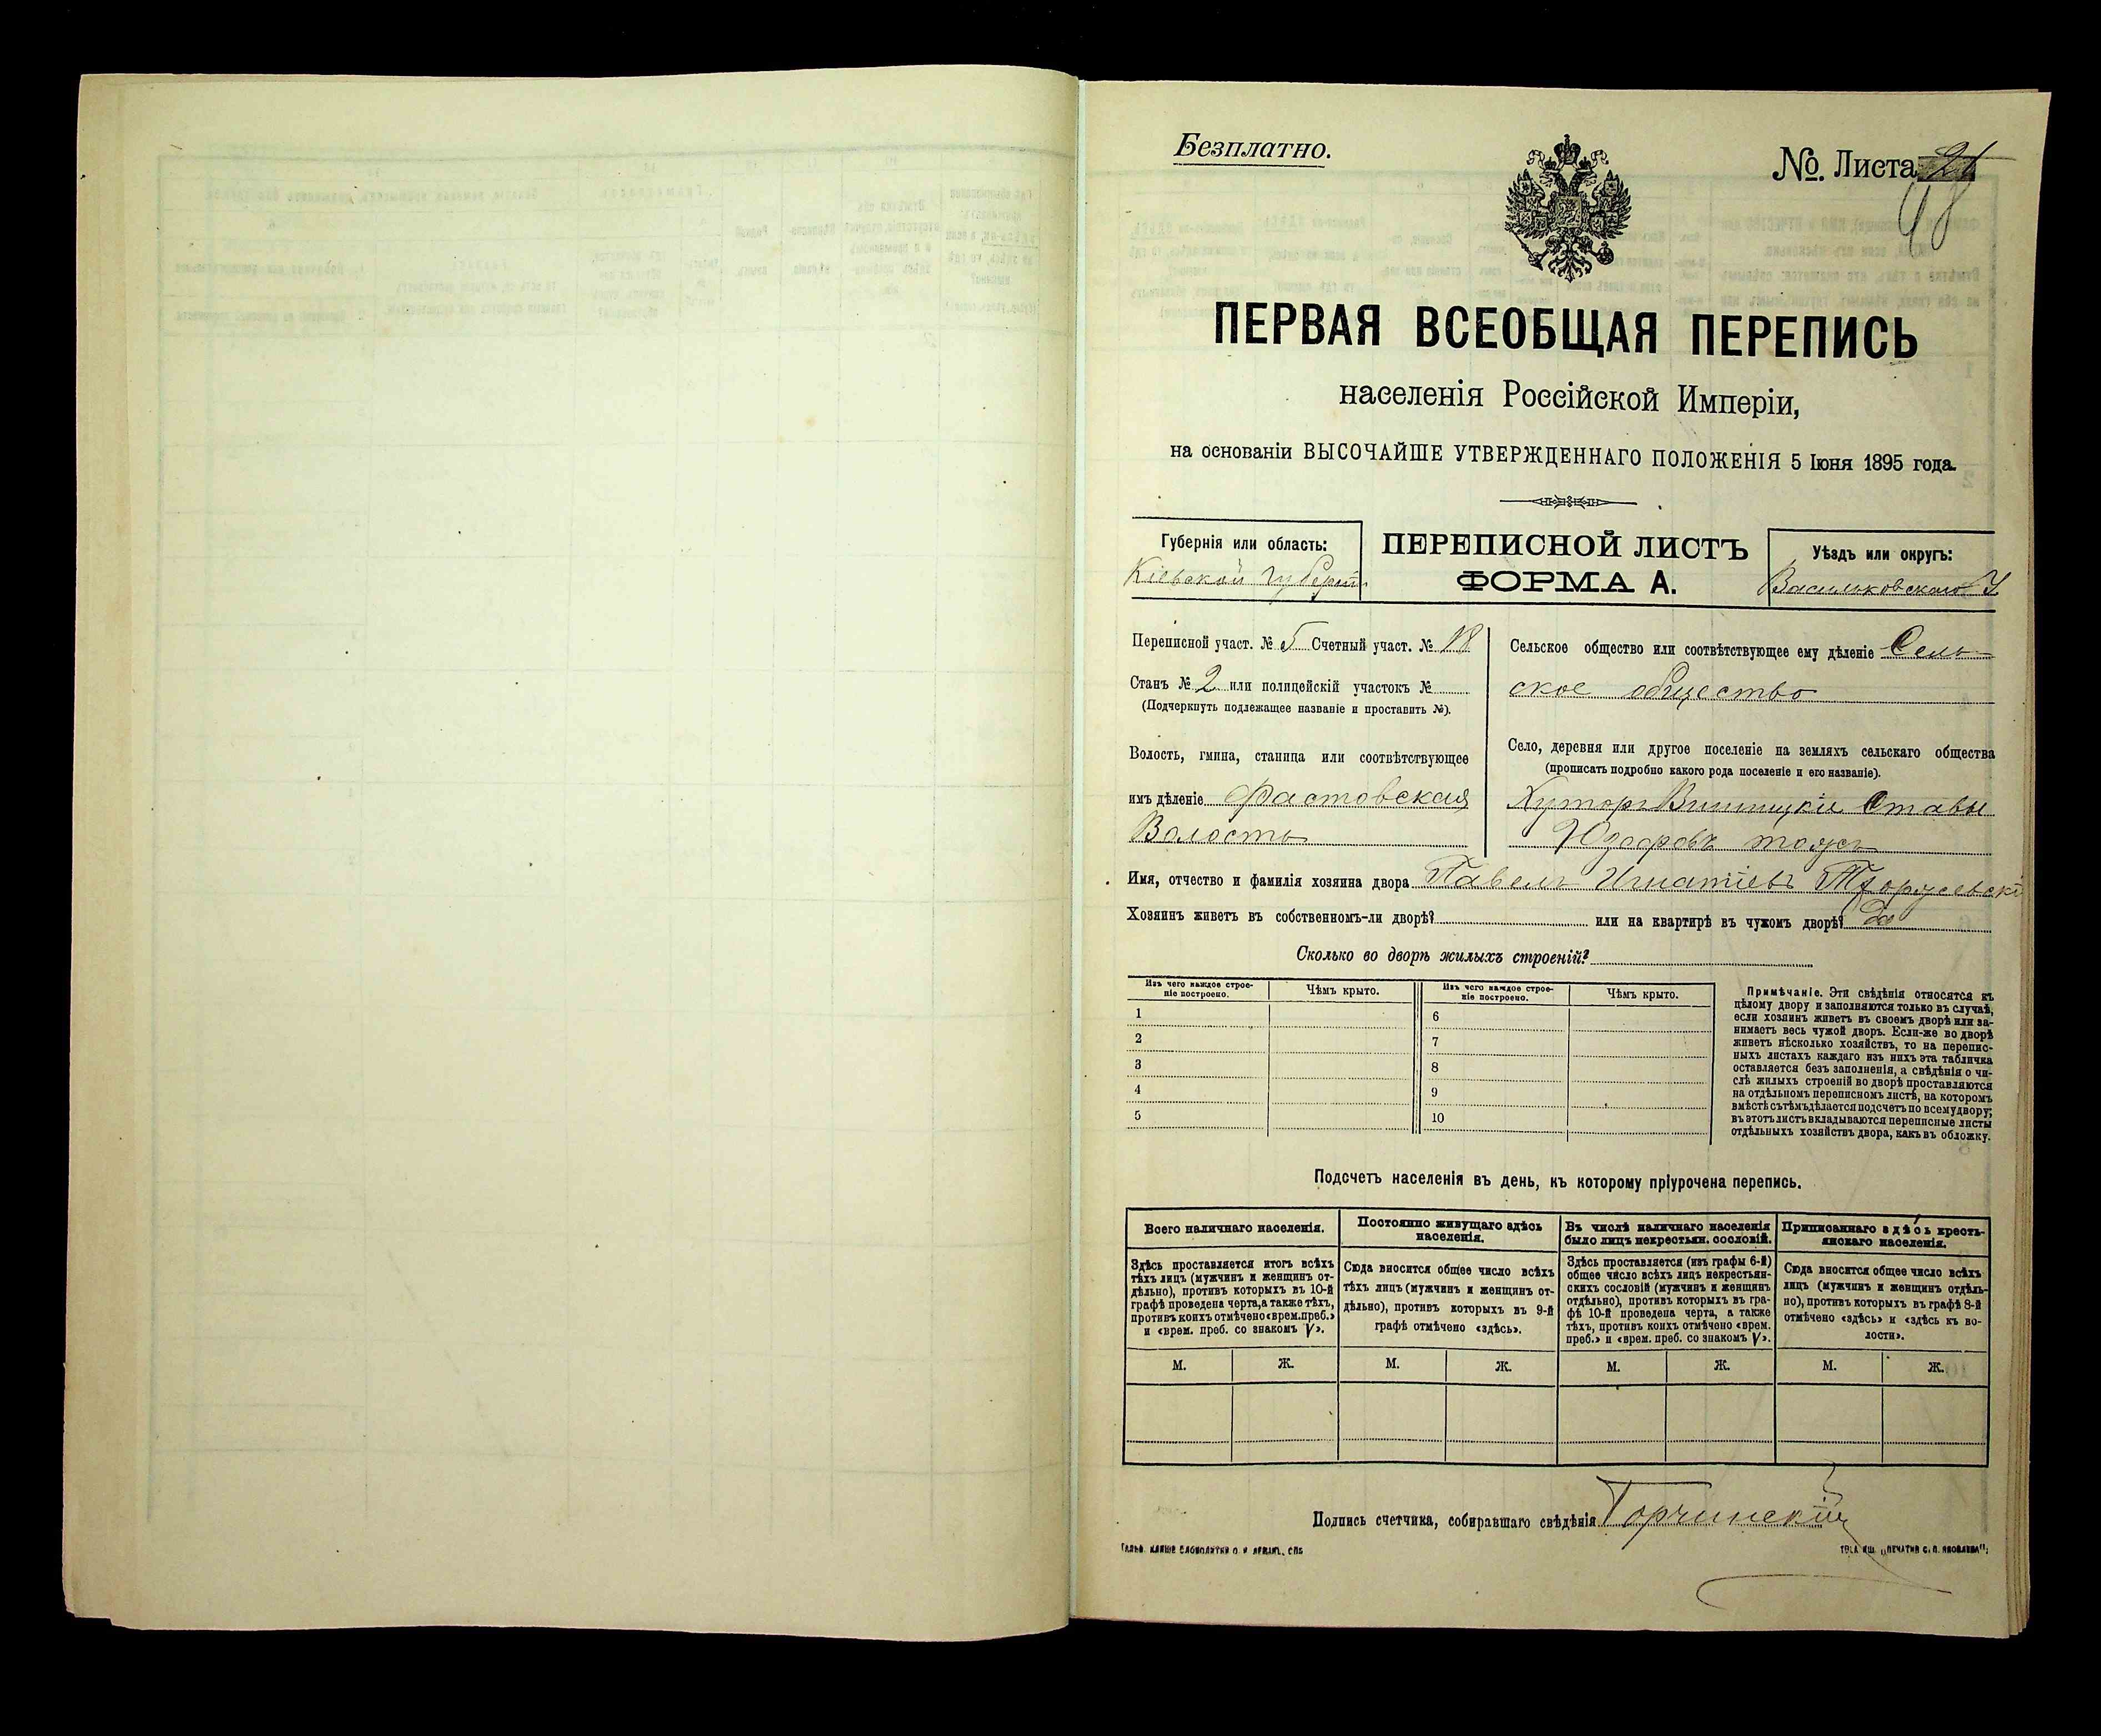 Безплатно.
№. Листа
48
ПЕРВАЯ ВСЕОБЩАЯ ПЕРЕПИСЬ
населенія Россійской Имперіи,
на основаніи ВЫСОЧАЙШЕ УТВЕРЖДЕННАГО ПОЛОЖЕНІЯ 5 Іюня 1895 года.
Губернія или область:
Кіевской губерніи
ПЕРЕПИСНОЙ ЛИСТЪ
ФОРМА А.
Уѣздъ или округъ:
Васильковскаго У
Переписной участ. № 5 Счетный участ. № 18
Станъ № 2 или полицейскій участокъ №
(Подчеркнуть подлежащее названіе и проставить №).
Волость, гмина, станица или соотвѣтствующее
имъ дѣленіе Фастовская
Волость
Сельское общество или соотвѣтствующее ему дѣленіе Сель-
ское общество
Село, деревня или другое поселеніе на земляхъ сельскаго общества
(прописать подробно какого рода поселеніе и его названіе).
Хуторъ Винницкіе Ставы
тожъ
Имя, отчество и фамилія хозяина двора Павелъ Игнатіевъ
Хозяинъ живетъ въ собственномъ-ли дворѣ? или на квартирѣ въ чужомъ дворѣ? Да
Сколько во дворѣ жилыхъ строеній?
Изъ чего каждое строе-
ніе построено.
Чѣмъ крыто.
Изъ чего каждое строе-
ніе построено.
Чѣмъ крыто.
1
2
3
4
5
6
7
8
9
10
Примѣчаніе. Эти свѣдѣнія относятся къ
цѣлому двору и заполняются только въ случаѣ,
если хозяинъ живетъ въ своемъ дворѣ или за-
нимаетъ весь чужой дворъ. Если-же во дворѣ
живетъ нѣсколько хозяйствъ, то на перепис-
ныхъ листахъ каждаго изъ нихъ эта табличка
оставляется безъ заполненія, а свѣдѣнія о чи-
слѣ жилыхъ строеній во дворѣ проставляются
на отдѣльномъ переписномъ листѣ, на которомъ
вмѣстѣ съ тѣмъ дѣлается подсчетъ по всему двору;
въ этотъ листъ вкладываются переписные листы
отдѣльныхъ хозяйствъ двора, какъ въ обложку.
Подсчетъ населенія въ день, къ которому пріурочена перепись.
Всего наличнаго населенія.
Здѣсь проставляется итогъ всѣхъ
тѣхъ лицъ (мужчинъ и женщинъ от-
дѣльно), противъ которыхъ въ 10-й
графѣ проведена черта, а также тѣхъ,
противъ коихъ отмѣчено «врем. преб.»
и «врем. преб. со знакомъ V».
М. Ж.
Постоянно живущаго здѣсь
населенія.
Сюда вносится общее число всѣхъ
тѣхъ лицъ (мужчинъ и женщинъ от-
дѣльно), противъ которыхъ въ 9-й
графѣ отмѣчено «здѣсь».
М. Ж.
Въ числѣ наличнаго населенія
было лицъ некрестьян. сословій.
Здѣсь проставляется (изъ графы 6-й)
общее число всѣхъ лицъ некрестьян-
скихъ сословій (мужчинъ и женщинъ
отдѣльно), противъ которыхъ въ гра-
фѣ 10-й проведена черта, а также
тѣхъ, противъ коихъ отмѣчено «врем.
преб.» и «врем. преб. со знакомъ V».
М. Ж.
Приписаннаго здѣсь кресть-
янскаго населенія.
Сюда вносится общее число всѣхъ
лицъ (мужчинъ и женщинъ отдѣль-
но), противъ которыхъ въ графѣ 8-й
отмѣчено «здѣсь» и «здѣсь къ во-
лости».
М. Ж.
Подпись счетчика, собиравшаго свѣдѣнія Горчинскій